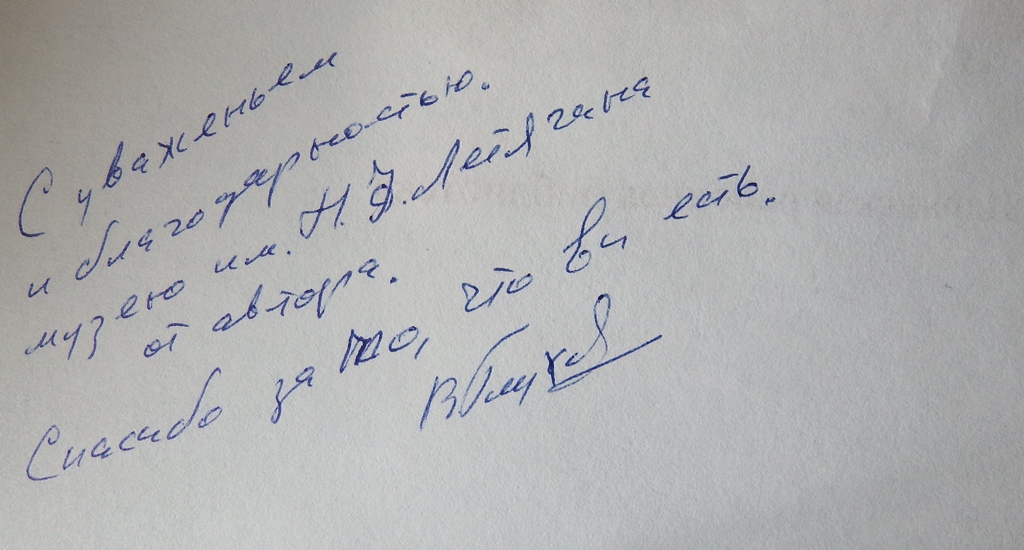 С уваженьем
и благодарностью.
музею им. Н. Д. Летягана
от автора.
Спасибо за то, что вы есть.